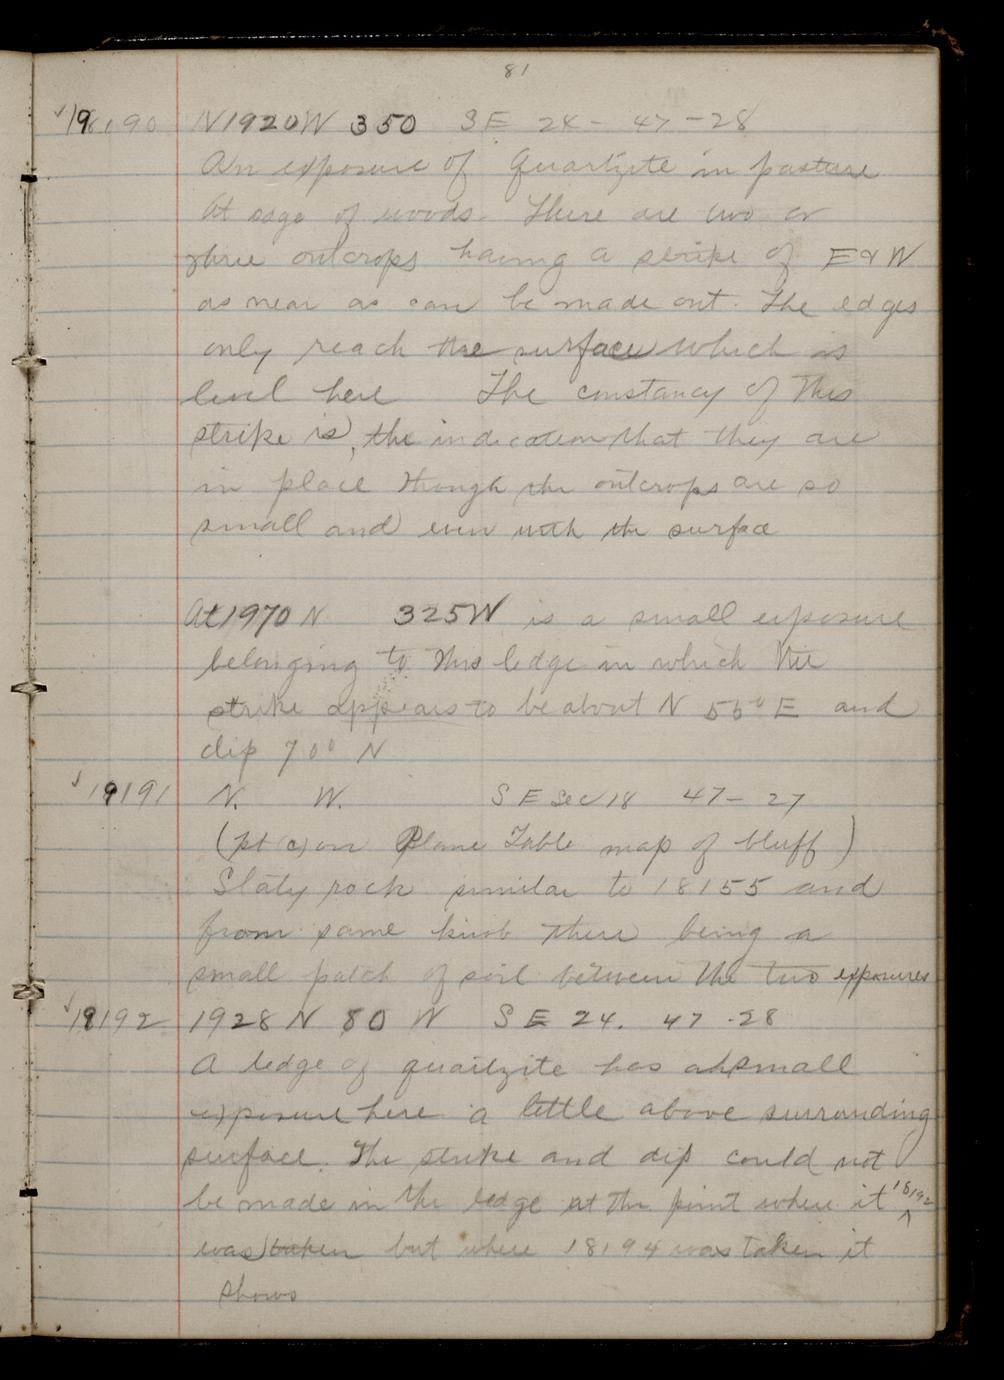 81
18190 N1920W 350 SE 24 - 47 - 28
An exposure of Quartzite in pasture
At edge of woods. There are two or
three outcrops having a strike of E & W
as near as can be made out. The edges
only reach the surface which is
level here The constancy of this
strike is, the indication that they are
in place though the outcrops are so
small and even with the surface
At 1970 N 325W is a small exposure
belonging to this ledge in which the
strike appears to be about N 55° E and
dip 70° N
18191 N. W. S E Sec 18 47 - 27
(pt (c) on Plane Table map of bluff)
Slaty rock similar to 18155 and
from same knob there being a
small patch of soil between the two exposures
18192 1928 N 80 W S E 24. 47 - 28
A ledge of quartzite has a small
exposure here a little above surrounding
surface. The strike and dip could not
be made in the ledge at the point where it 18192
was taken but where 18194 was taken it
shows